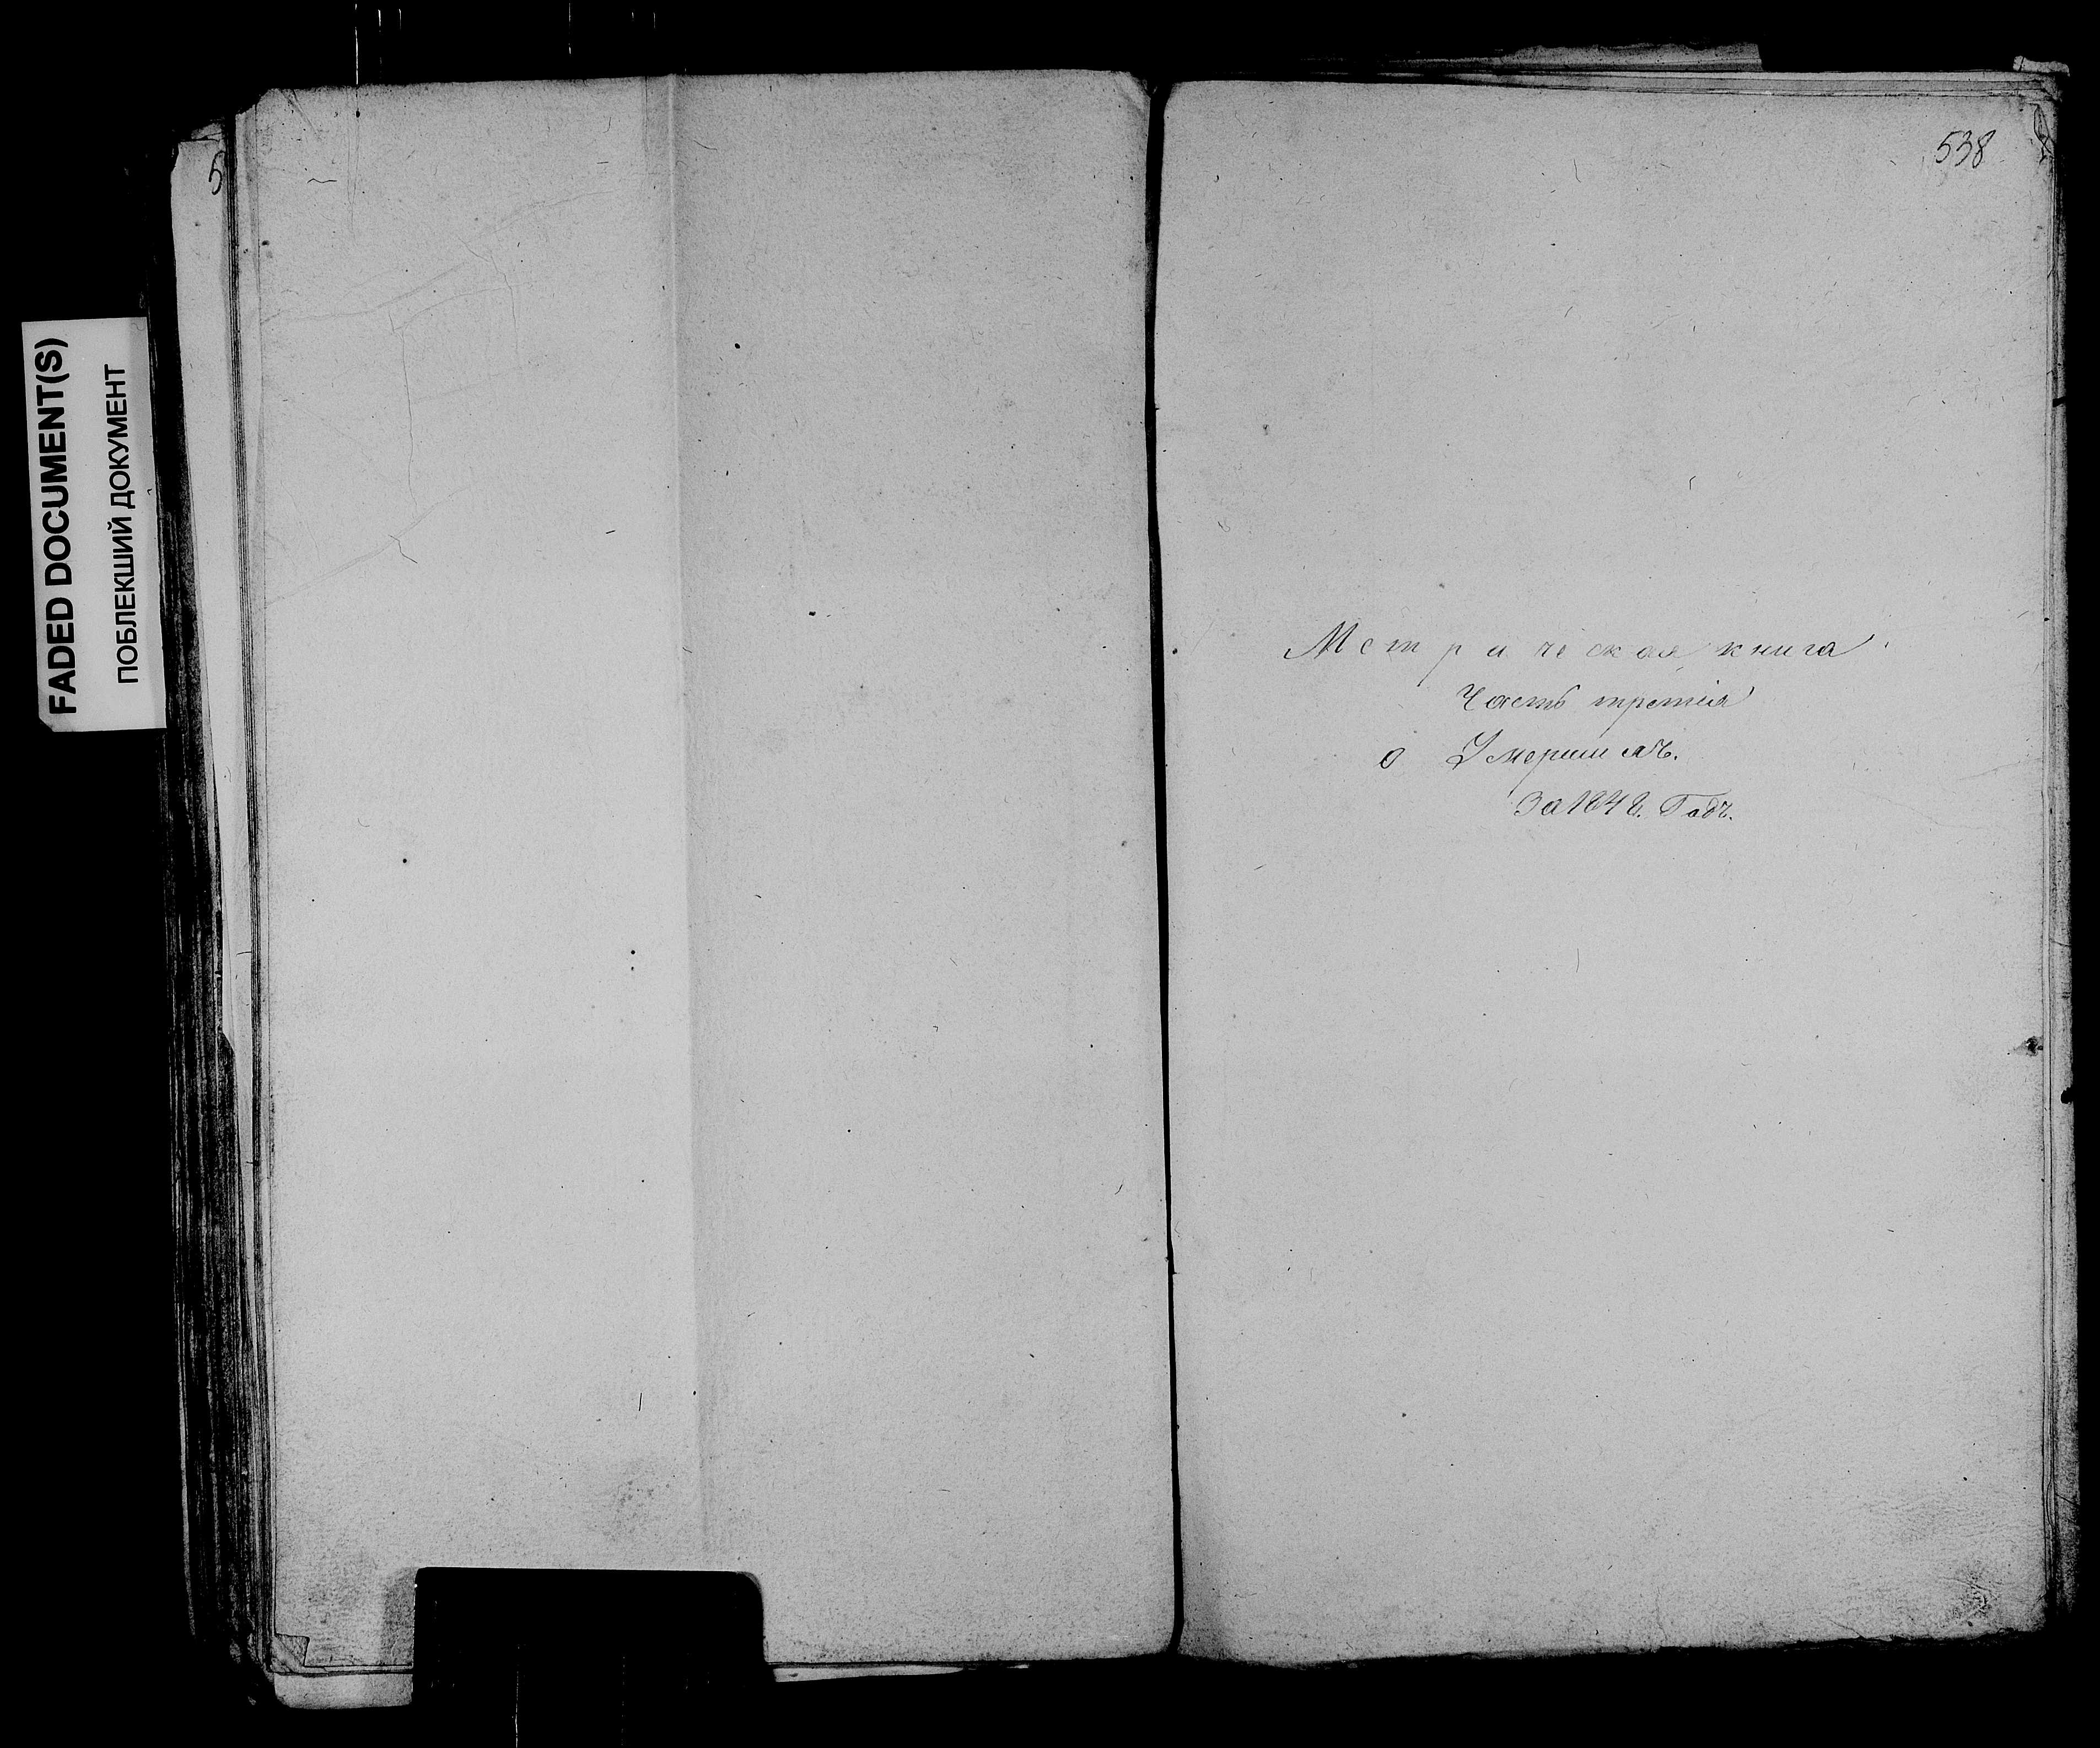 FADED DOCUMENT(S)
ПОБЛЕКШИЙ ДОКУМЕНТ
5
538
Метрическая книга
Часть третія
о Умершихъ.
За 1848. Годъ.